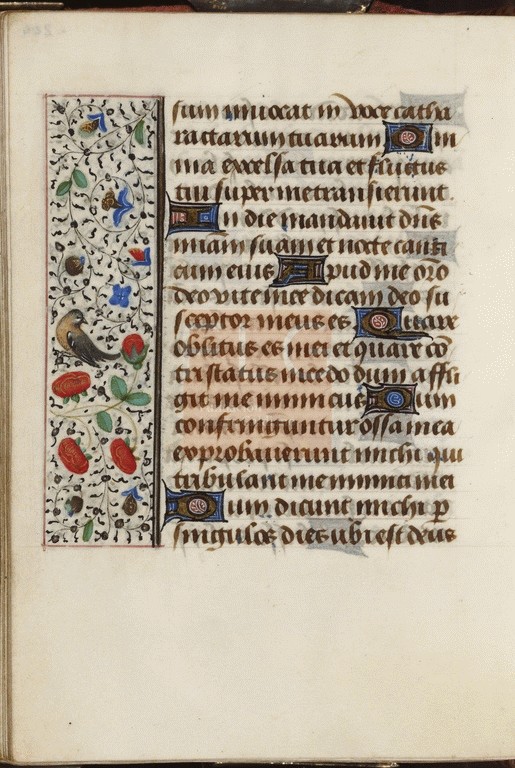 sum inuocat in voce catha
ractarum tuarum Om
nia excelsa tua et fluctus
tui super me transierunt.
In die mandauit dn̄s
miam̄ suam et nocte canti
cum eius Apud me orō
deo vite mee dicam deo su
sceptor meus es Quare
oblitus es mei et quare cō
tristatus incedo dum affli
git me inimicus Dum
confringuntur ossa mea
exprobauerunt michi qui
tribulant me inimici mei
Dum dicunt michi ꝑ
singulos dies ubi est deus